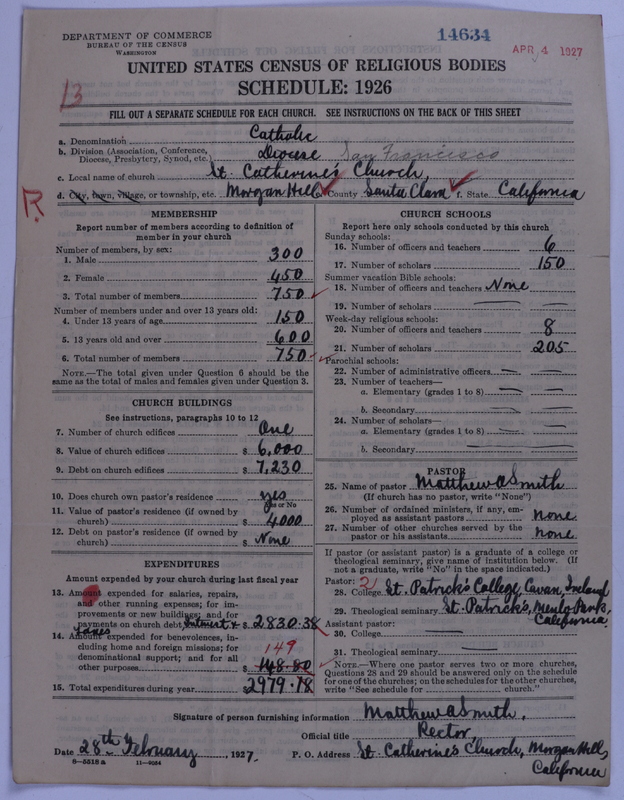 DEPARTMENT OF COMMERCE
BUREAU OF THE CENSUS
WASHINGTON
14634
APR 4 1927
UNITED STATES CENSUS OF RELIGIOUS BODIES
SCHEDULE: 1926
13
FILL OUT A SEPARATE SCHEDULE FOR EACH CHURCH. SEE INSTRUCTIONS ON THE BACK OF THIS SHEET
a. Denomination Catholic
b. Division (Association, Conference, Diocese, Presbytery, Synod, etc.) Diocese San Francisco
c. Local name of church St. Catherine's Church,
R.
d. City, town, village, or township, etc. Morgan Hill e. County Santa Clara f. State California
MEMBERSHIP
Report number of members according to definition of
member in your church
Number of members, by sex:
1. Male 300
2. Female 450
3. Total number of members 750
Number of members under and over 13 years old:
4. Under 13 years of age 150
5. 13 years old and over 600
6. Total number of members 750
NOTE.—The total given under Question 6 should be
same as the total of males and females given under Question 3.
CHURCH BUILDINGS
See instructions, paragraphs 10 to 12
7. Number of church edifices One
8. Value of church edifices $ 6,000
9. Debt on church edifices $ 7,230
10. Does church own pastor's residence yes
Yes or No
11. Value of pastor's residence (if owned by
church) $ 4,000
12. Debt on pastor's residence (if owned by
church) $ None
EXPENDITURES
Amount expended by your church during last fiscal year
13. Amount expended for salaries, repairs,
and other running expenses; for im-
provements or new buildings; and for
payments on church debt, Interest & $ 2830.38
Taxes
14. Amount expended for benevolences, in-
cluding home and foreign missions; for
denominational support; and for all
149
other purposes $ 148.80
15. Total expenditures during year $ 2979.18
CHURCH SCHOOLS
Report here only schools conducted by this church
Sunday schools:
16. Number of officers and teachers 6
17. Number of scholars 150
Summer vacation Bible schools:
18. Number of officers and teachers None
19. Number of scholars
Week-day religious schools:
20. Number of officers and teachers 8
21. Number of scholars 205
Parochial schools:
22. Number of administrative officers
23. Number of teachers—
a. Elementary (grades 1 to 8)
b. Secondary
24. Number of scholars—
a. Elementary (grades 1 to 8)
b. Secondary
PASTOR
25. Name of pastor Matthew A Smith
(If church has no pastor, write "None")
26. Number of ordained ministers, if any, em-
ployed as assistant pastors none
27. Number of other churches served by the
pastor or his assistants none
If pastor (or assistant pastor) is a graduate of a college or
theological seminary, give name of institution below. (If
not a graduate, write "No" in the space indicated.)
Pastor: 2
28. College St. Patrick's College, Cavan, Ireland
29. Theological seminary St. Patrick's, Menlo Park,
California
Assistant pastor:
30. College
31. Theological seminary
NOTE.—Where one pastor serves two or more churches,
Questions 28 and 29 should be answered only on the schedule
for one of the churches; on the schedules for the other churches,
write "See schedule for church."
Signature of person furnishing information Matthew A Smith,
Official title Rector,
Date 28th February, 1927. P. O. Address St. Catherine's Church, Morgan Hill,
California
8—5518 a 11—9084